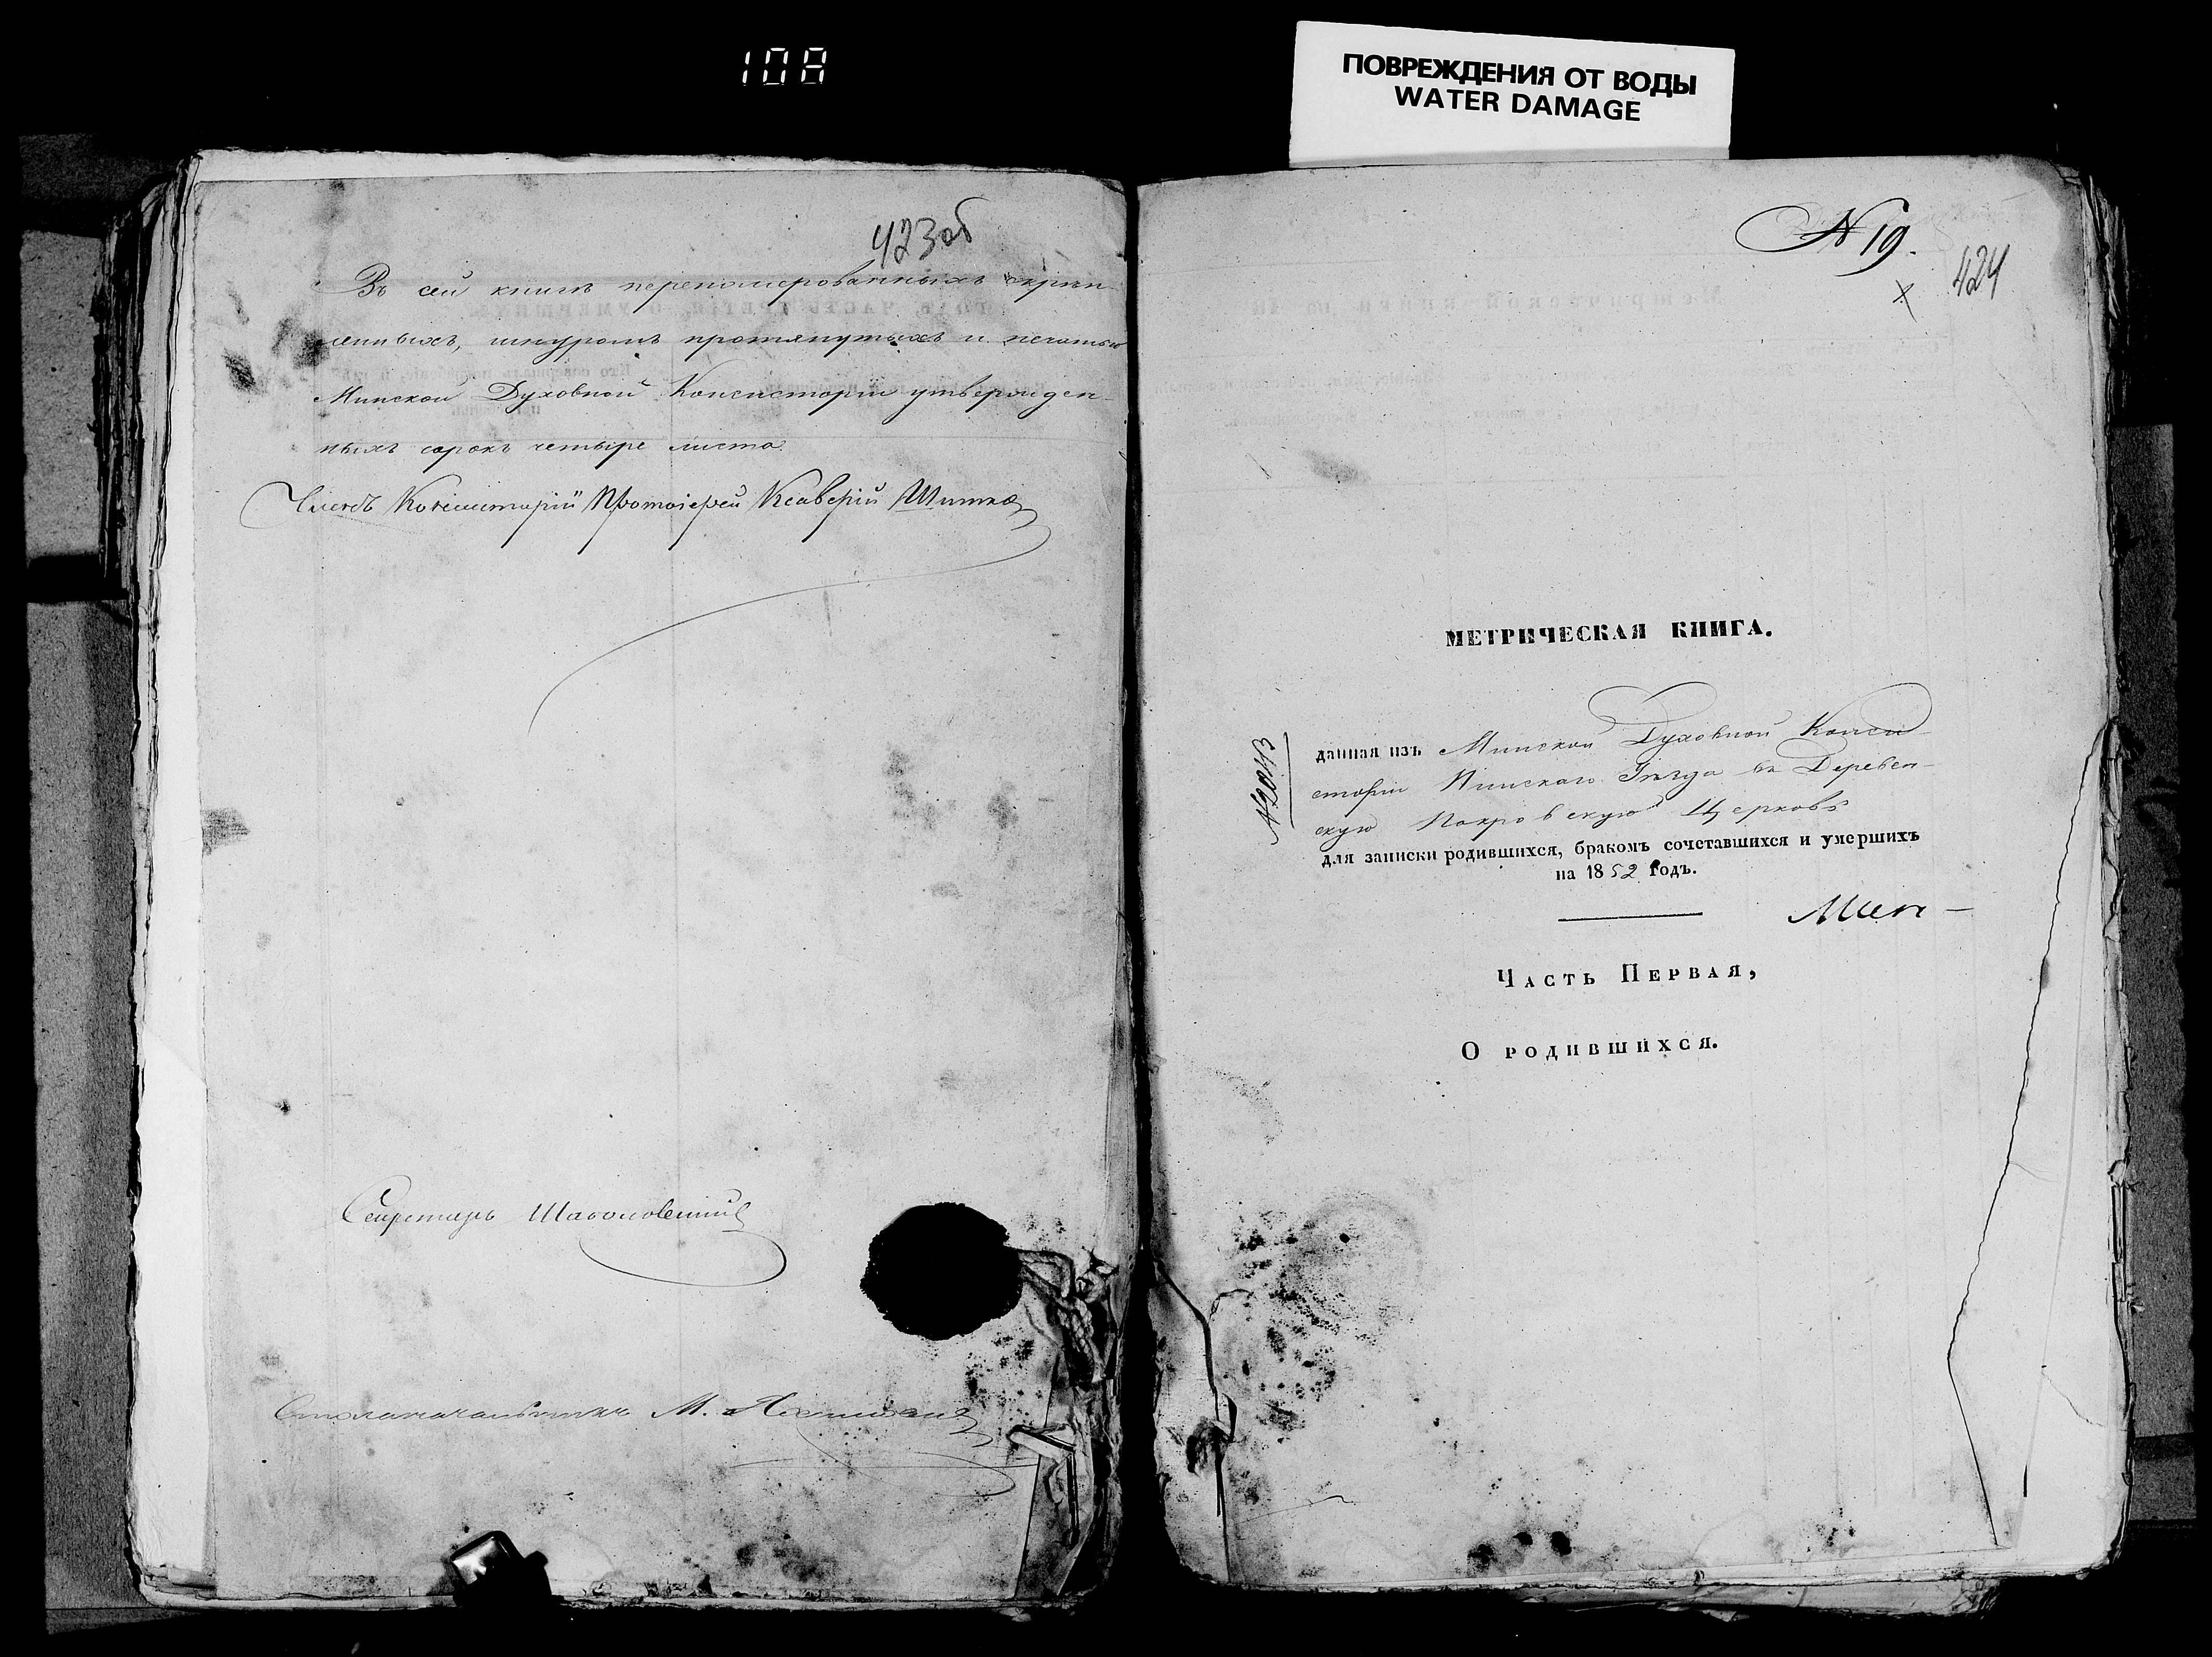 108
ПОВРЕЖДЕНИЯ ОТ ВОДЫ
WATER DAMAGE
423об
Въ сей книгѣ перенумерованныхъ скрѣп-
ленныхъ, шнуромъ протянутыхъ и печатью
Минской Духовной Консисторіи утвержден-
ныхъ сорокъ четыре листа
Членъ Консисторіи Протоіерей Ксаверій Шитко
Секретарь
Столоначальникъ М.
N 19.
424
МЕТРИЧЕСКАЯ КНИГА.
данная изъ Минской Духовной Конси-
сторіи Пинскаго Уѣзда въ Деревен-
скую Покровскую Церковь
для записки родившихся, бракомъ сочетавшихся и умершихъ
на 1852 годъ.
Часть Первая,
О родившихся.